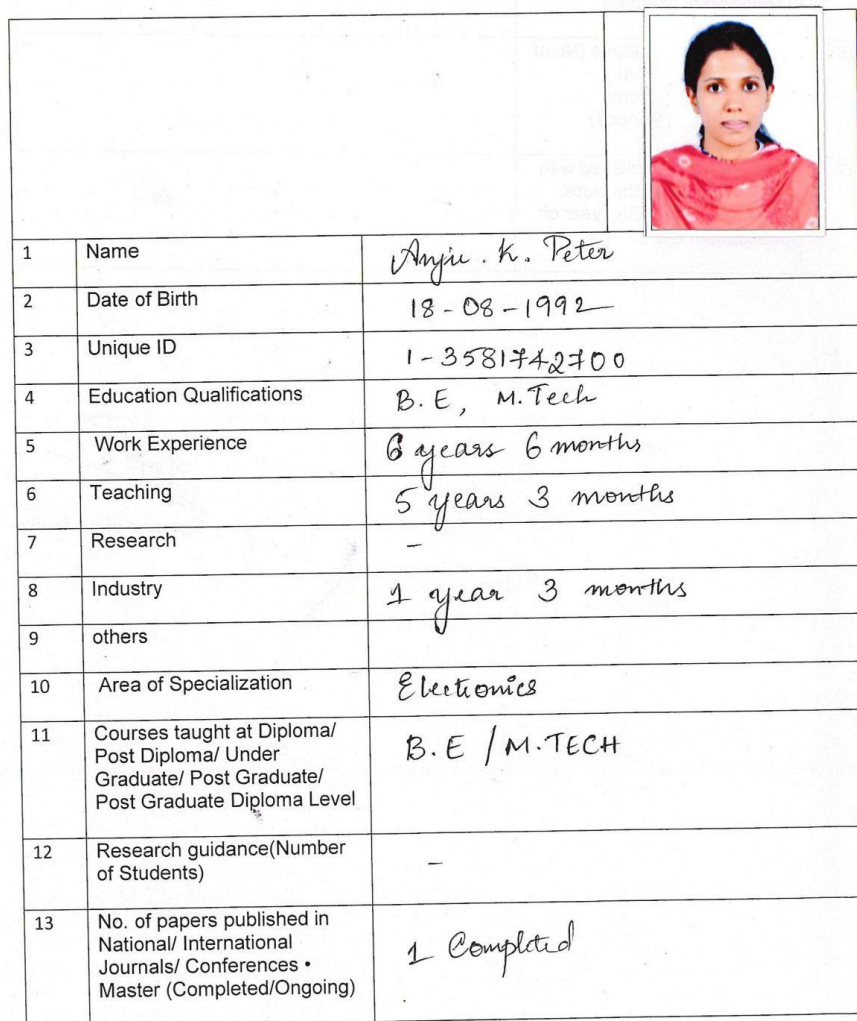 1 Name Anju. K. Peter
2 Date of Birth 18-08-1992
3 Unique ID 1-3581742700
4 Education Qualifications B.E, M.Tech
5 Work Experience 6 years 6 months
6 Teaching 5 years 3 months
7 Research -
8 Industry 1 year 3 months
9 others
10 Area of Specialization Electronics
11 Courses taught at Diploma/
Post Diploma/ Under B.E / M.TECH
Graduate/ Post Graduate/
Post Graduate Diploma Level
12 Research guidance(Number
of Students) -
13 No. of papers published in
National/ International
Journals/ Conferences • 1 Completed
Master (Completed/Ongoing)